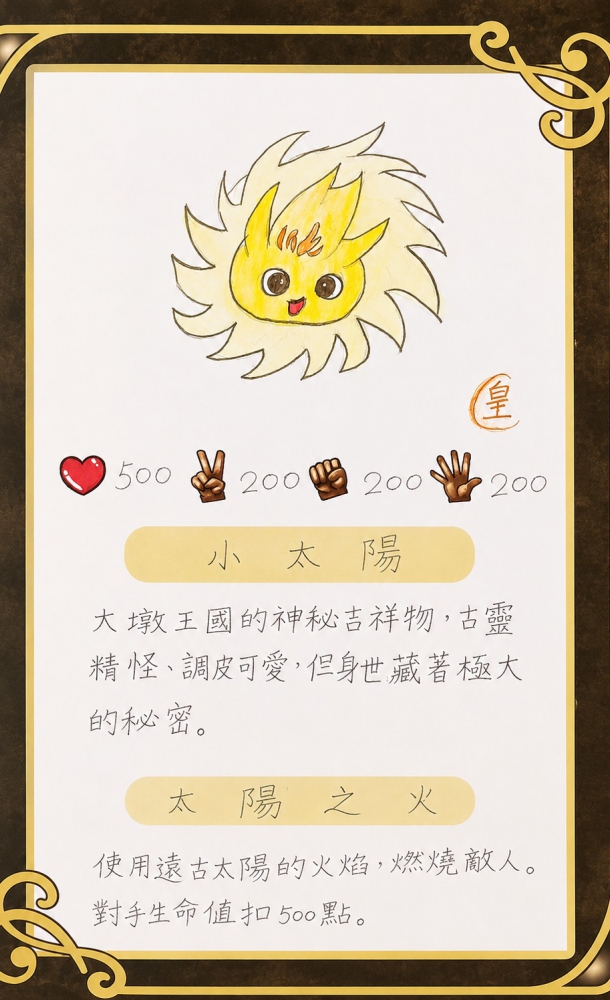 皇
500 200 200 200
小太陽
大墩王國的神秘吉祥物，古靈
精怪、調皮可愛，但身世藏著極大
的秘密。
太陽之火
使用遠古太陽的火焰，燃燒敵人。
對手生命值扣500點。